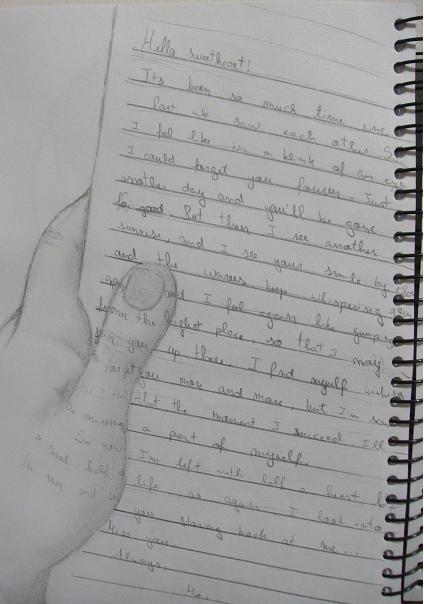 Hello sweetheart!
Its been so much time since
last we saw each other. So
I feel like in a blink of an eye
I could forget you forever. Just
another day and you'll be gone
for good. But then I see another
sunrise, and I see your smile by the
and the waves keep whispering
and I feel again like jumping
from the highest place, so that I may
join you up there. I find myself
forget you more and more, but I'm
I feel that the moment I succeed I'll
be missing a part of myself.
So you I'm left with half a heart, half
a soul, half a life, as again I look into
the sea and see you staring back at me...
Miss you.
Always,
Me.